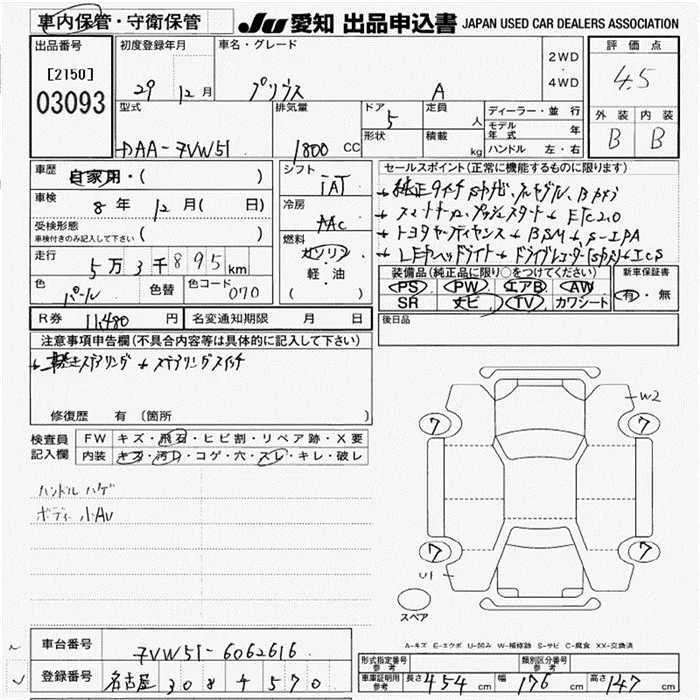 車内保管・守衛保管
JU 愛知 出品申込書 JAPAN USED CAR DEALERS ASSOCIATION
出品番号
[2150]
03093
初度登録年月
29 12 月
車名・グレード
プリウス A
2WD
・
4WD
評価点
4.5
外装 内装
B B
型式
DAA-ZVW51
排気量
1800 CC
ドア
5
形状
定員
人
積載
kg
ディーラー・並行
モデル年式 年
ハンドル 左・右
車歴
自家用・( )
車検
8 年 12 月 ( 日)
受検形態
車検付きのみ記入して下さい ( )
走行
5 万 3 千 895 km
色
パール
色替
色コード
070
シフト
IAT
冷房
AAC
燃料
ガソリン
・
軽・油
( )
セールスポイント(正常に機能するものに限ります)
スマートキー プッシュスタート ETC2.0
BSM S-IPA
LEDヘッドライト ドライブレコーダー ICS
装備品(純正品に限り○をつけてください)
PS PW エアB AW
SR ナビ TV カワシート
新車保証書
有・無
R券 11,480 円 名変通知期限 月 日
後日品
注意事項申告欄(不具合内容等は具体的に記入して下さい)
ステアリング ステアリングスイッチ
修復歴 有 (箇所 )
検査員記入欄
FW キズ・飛石・ヒビ割・リペア跡・X要
内装 キズ・汚レ・コゲ・穴・スレ・キレ・破レ
ハンドル ハゲ
ボディー 小AU
W2
7 7
7 7
U1
スペア
A-キズ E-エクボ U-凹み W-補修跡 S-サビ C-腐食 XX-交換済
車台番号 ZVW51-6062616
登録番号 名古屋 308 テ 570
型式指定番号 参考
類別区分番号 参考
車庫証明用 参考 長さ 454 cm 幅 176 cm 高さ 147 cm